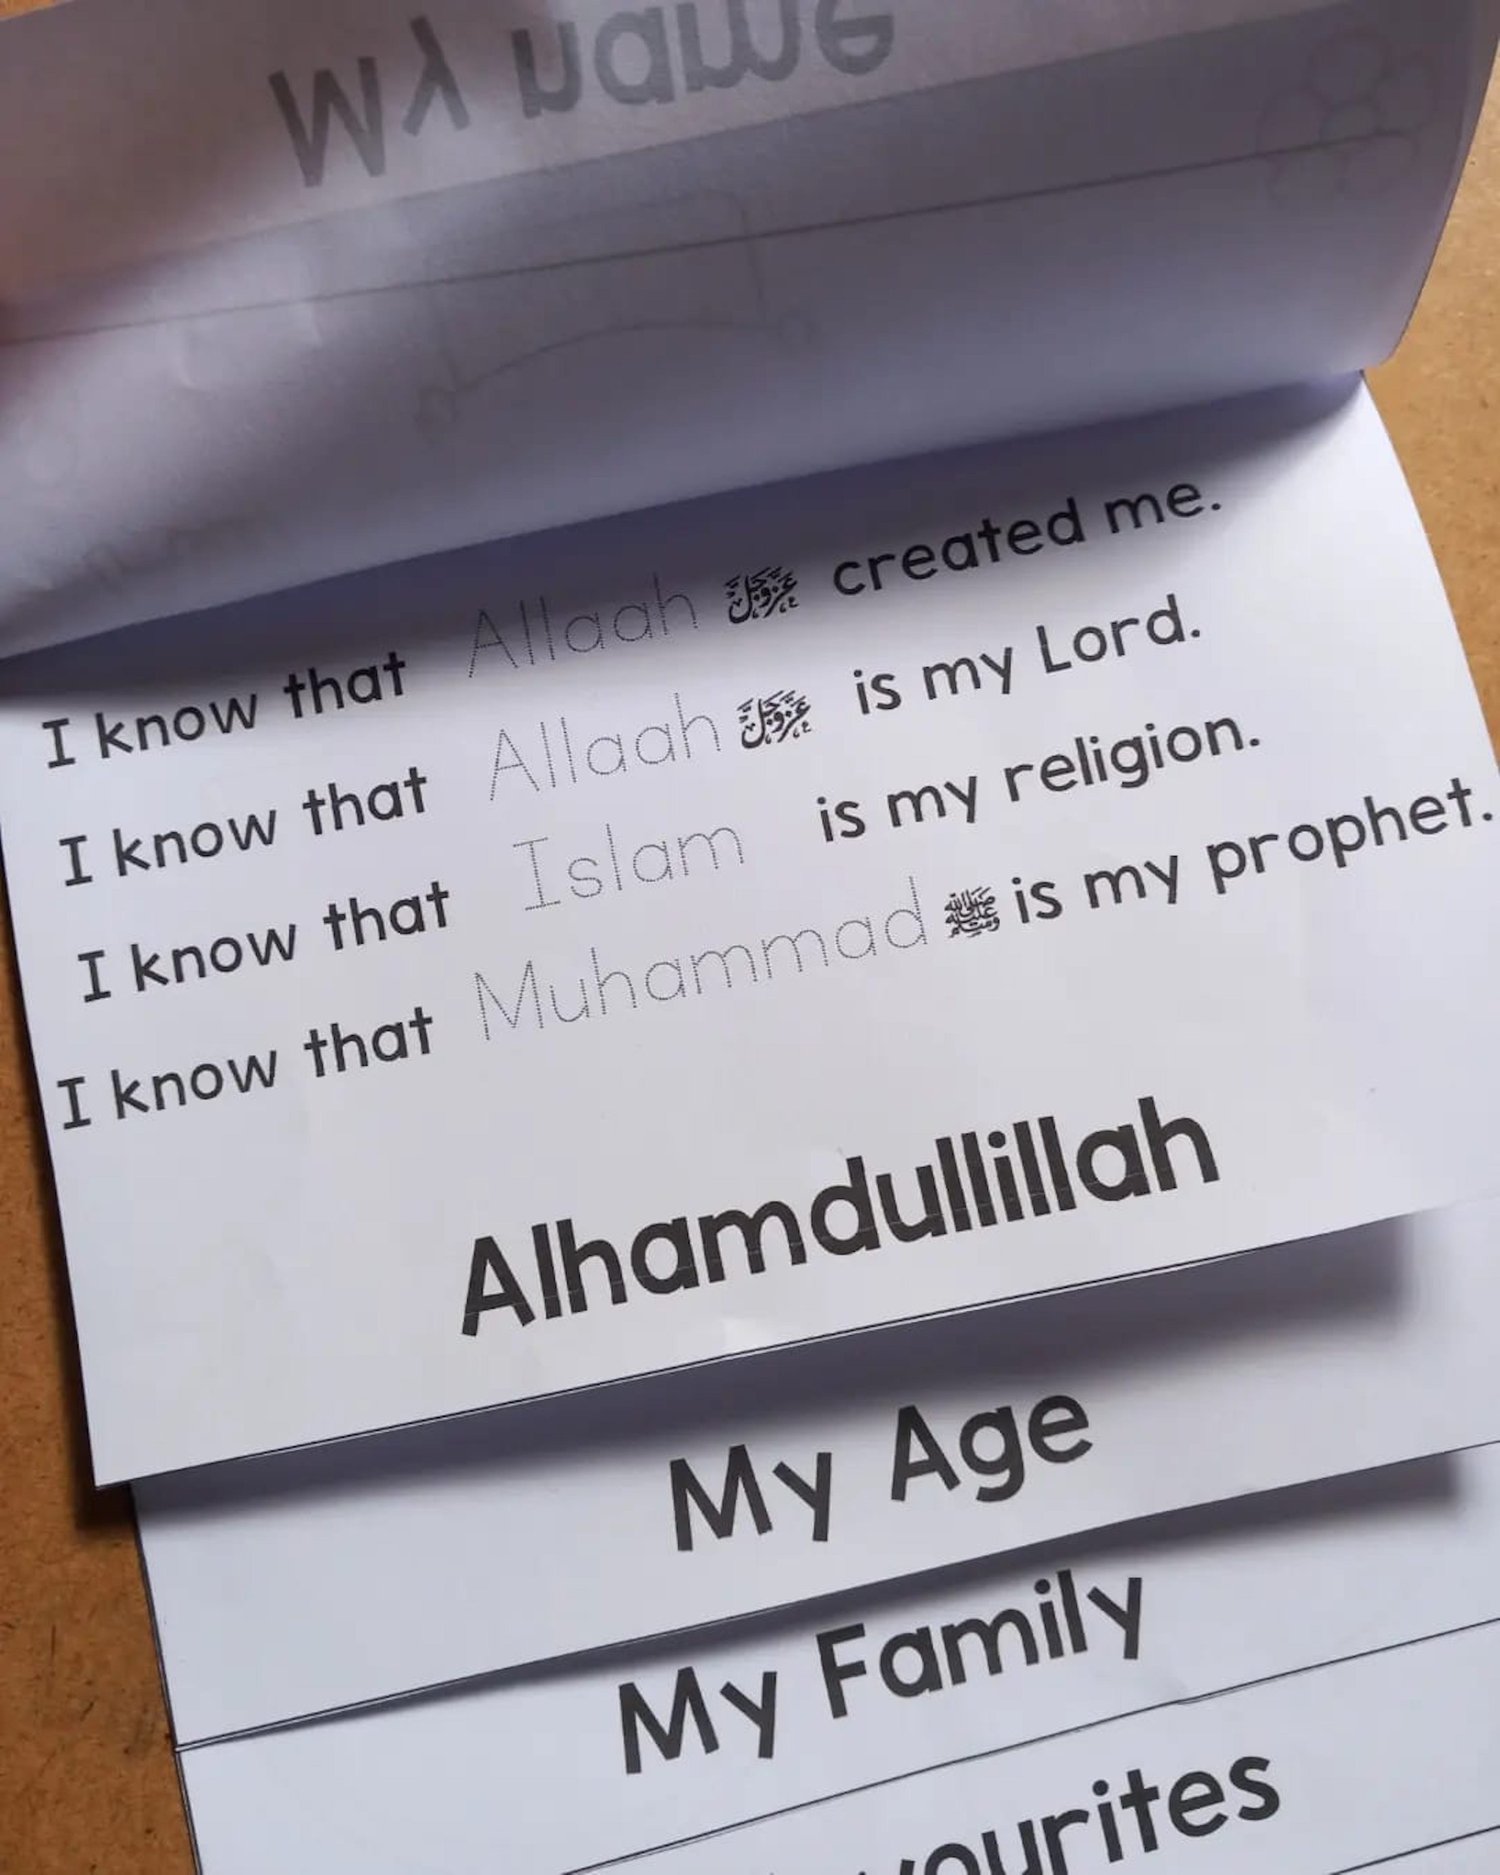 My name
I know that Allaah عَزَّوَجَلَّ created me.
I know that Allaah عَزَّوَجَلَّ is my Lord.
I know that Islam is my religion.
I know that Muhammad ﷺ is my prophet.
Alhamdullillah
My Age
My Family
vourites